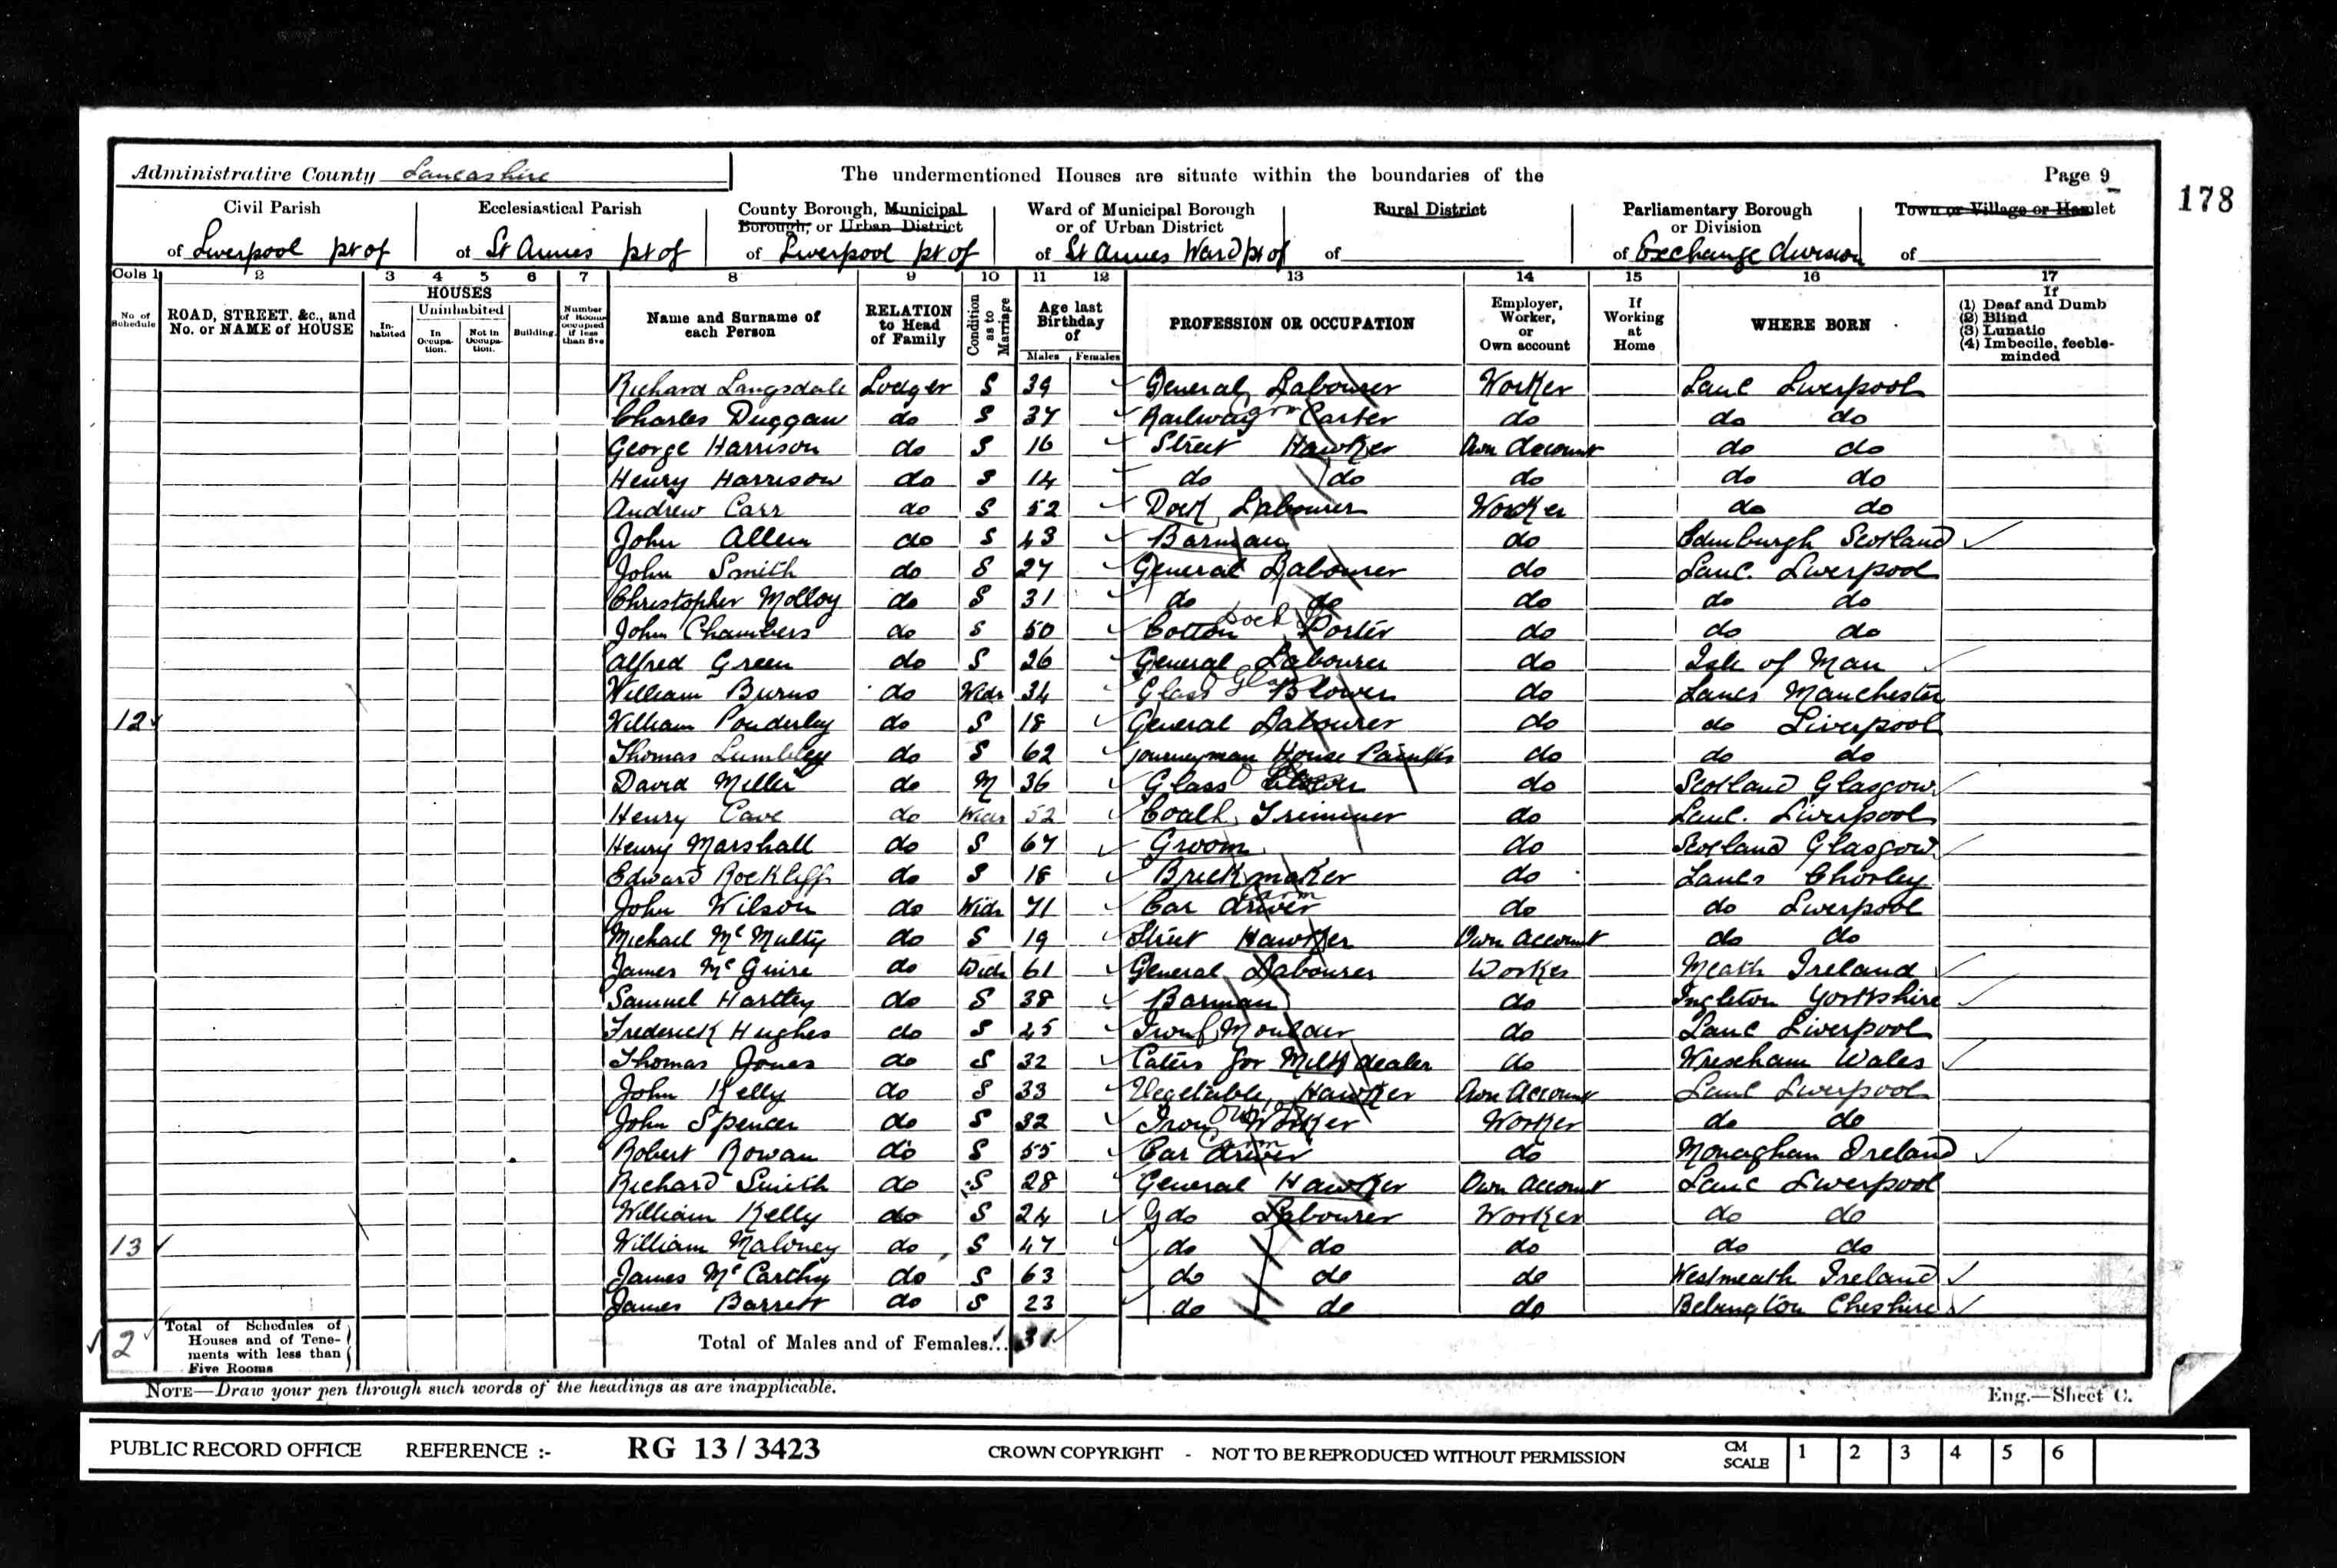 Administrative County Lancashire The undermentioned Houses are situate within the boundaries of the Page 9
178
Civil Parish of Liverpool pt of
Ecclesiastical Parish of St Annes pt of
County Borough, Municipal Borough, or Urban District of Liverpool pt of
Ward of Municipal Borough or of Urban District of St Annes Ward pt of
Rural District of
Parliamentary Borough or Division of Exchange division
Town or Village or Hamlet of
Cols 1 2 3 4 5 6 7 8 9 10 11 12 13 14 15 16 17
No. of Schedule
ROAD, STREET, &c., and No. or NAME of HOUSE
HOUSES
Inhabited
Uninhabited
In Occupation.
Not in Occupation.
Building.
Number of Rooms occupied if less than five
Name and Surname of each Person
RELATION to Head of Family
Condition as to Marriage
Age last Birthday of
Males Females
PROFESSION OR OCCUPATION
Employer, Worker, or Own account
If Working at Home
WHERE BORN
If
(1) Deaf and Dumb
(2) Blind
(3) Lunatic
(4) Imbecile, feeble-minded
Richard Langsdale Lodger S 39 General Labourer Worker Lanc Liverpool
Charles Duggan do S 37 Railway Carter do do do
George Harrison do S 16 Street Hawker Own Account do do
Henry Harrison do S 14 do do do do do
Andrew Carr do S 52 Dock Labourer Worker do do
John Allen do S 43 Barman do Edinburgh Scotland
John Smith do S 27 General Labourer do Lanc. Liverpool
Christopher Molloy do S 31 do do do do do
John Chambers do S 50 Cotton Dock Porter do do do
Alfred Green do S 26 General Labourer do Isle of Man
William Burns do Widr 34 Glass Blower do Lancs Manchester
12 William Ponderley do S 18 General Labourer do do Liverpool
Thomas Lumbley do S 62 Journeyman House Painter do do do
David Miller do M 36 Glass Blower do Scotland Glasgow
Henry Cave do Widr 52 Coall Trimmer do Lanc. Liverpool
Henry Marshall do S 67 Groom do Scotland Glasgow
Edward Rockliff do S 18 Brickmaker do Lancs Chorley
John Wilson do Widr 71 Car driver do do Liverpool
Michael McNulty do S 19 Street Hawker Own Account do do
James McGuire do Widr 61 General Labourer Worker Meath Ireland
Samuel Hartley do S 38 Barman do Ingleton Yorkshire
Frederick Hughes do S 25 Iron Moulder do Lanc Liverpool
Thomas Jones do S 32 for Milk dealer do Wrexham Wales
John Kelly do S 33 Vegetable Hawker Own Account Lanc Liverpool
John Spencer do S 32 Iron Worker Worker do do
Robert Rowan do S 55 Car driver do Monaghan Ireland
Richard Smith do S 28 General Hawker Own Account Lanc Liverpool
William Kelly do S 24 G do Labourer Worker do do
13 William Maloney do S 47 do do do do do
James McCarthy do S 63 do do do Westmeath Ireland
James Barrett do S 23 do do do Bebington Cheshire
2 Total of Schedules of Houses and of Tenements with less than Five Rooms
Total of Males and of Females... 31
NOTE—Draw your pen through such words of the headings as are inapplicable.
Eng.—Sheet C.
PUBLIC RECORD OFFICE REFERENCE :- RG 13 / 3423 CROWN COPYRIGHT - NOT TO BE REPRODUCED WITHOUT PERMISSION CM SCALE 1 2 3 4 5 6